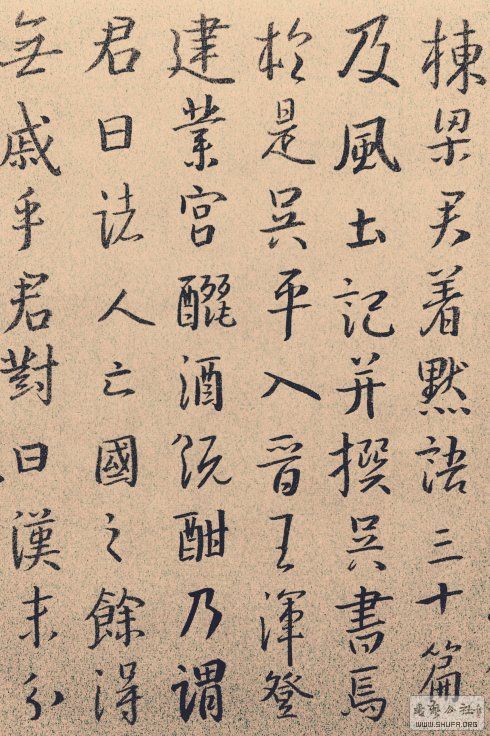 棟梁君着默語三十篇
及風土記并撰吳書焉
於是吳平入晉王渾登
建業宮釃酒既酣乃謂
君曰諸人亡國之餘得
無戚乎君對曰漢末分
WWW.SHUFA.ORG